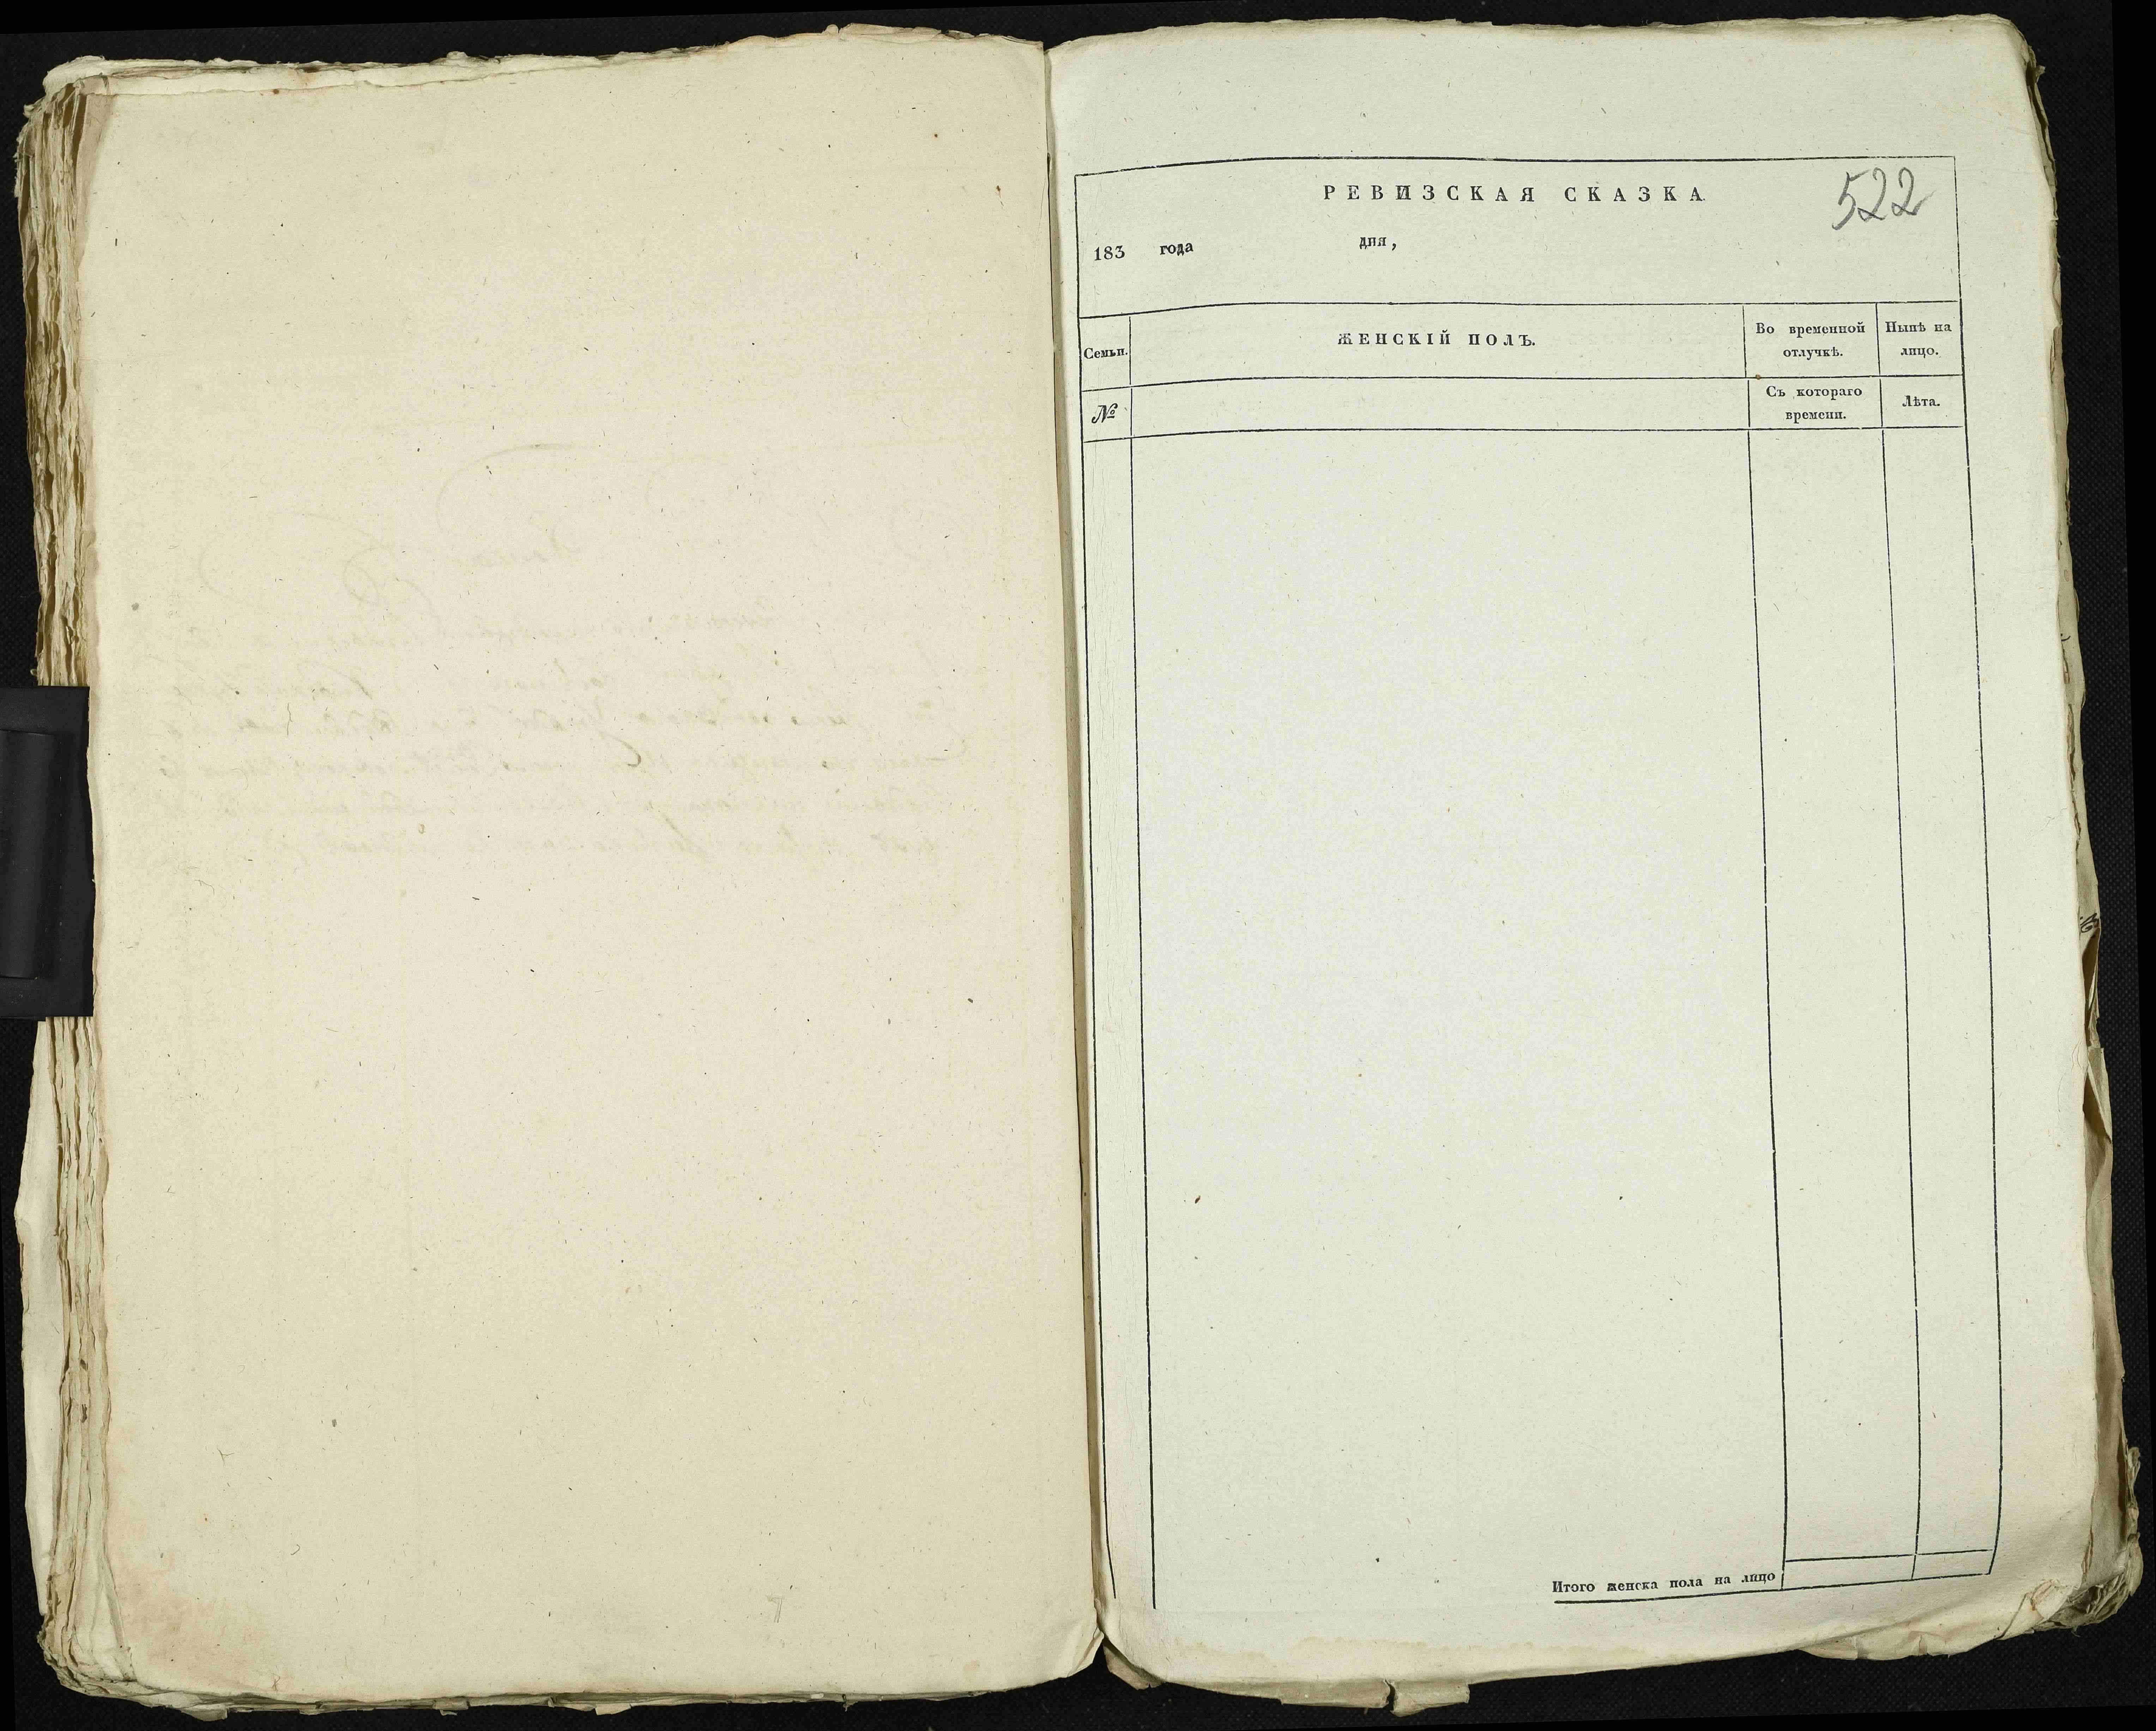 РЕВИЗСКАЯ СКАЗКА
522
183 года дня,
Семьи.
ЖЕНСКІЙ ПОЛЪ.
Во временной отлучкѣ.
Нынѣ на лицо.
№
Съ котораго времени.
Лѣта.
Итого женска пола на лицо